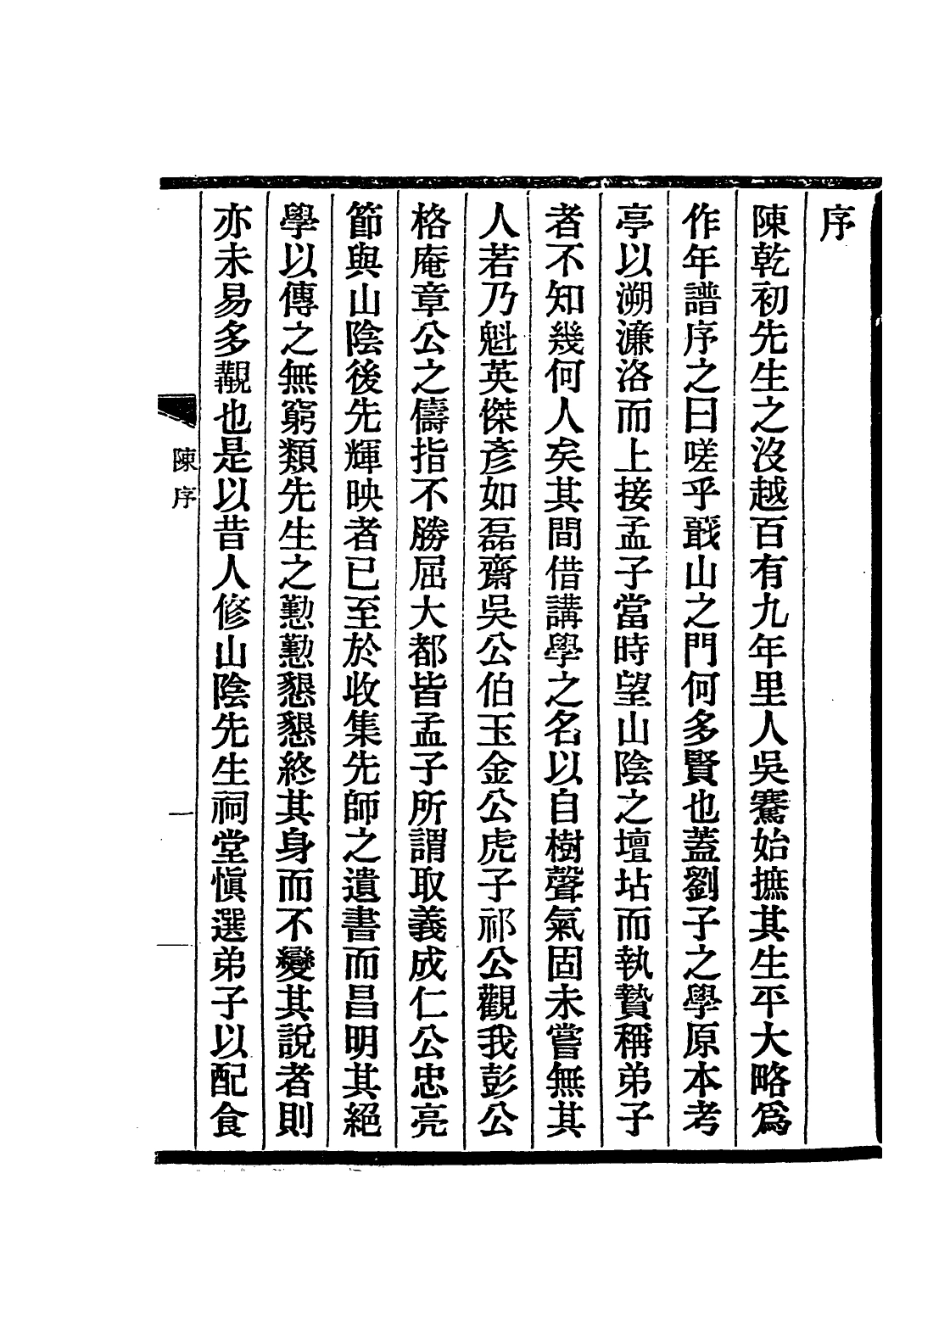 序
陳乾初先生之沒越百有九年里人吳騫始摭其生平大略爲
作年譜序之曰嗟乎蕺山之門何多賢也蓋劉子之學原本考
亭以溯濂洛而上接孟子當時望山陰之壇坫而執贄稱弟子
者不知幾何人矣其間借講學之名以自樹聲氣固未嘗無其
人若乃魁英傑彥如磊齋吳公伯玉金公虎子祁公觀我彭公
格庵章公之儔指不勝屈大都皆孟子所謂取義成仁公忠亮
節與山陰後先輝映者已至於收集先師之遺書而昌明其絕
學以傳之無窮類先生之懃懃懇懇終其身而不變其說者則
亦未易多覯也是以昔人修山陰先生祠堂愼選弟子以配食
陳序
一